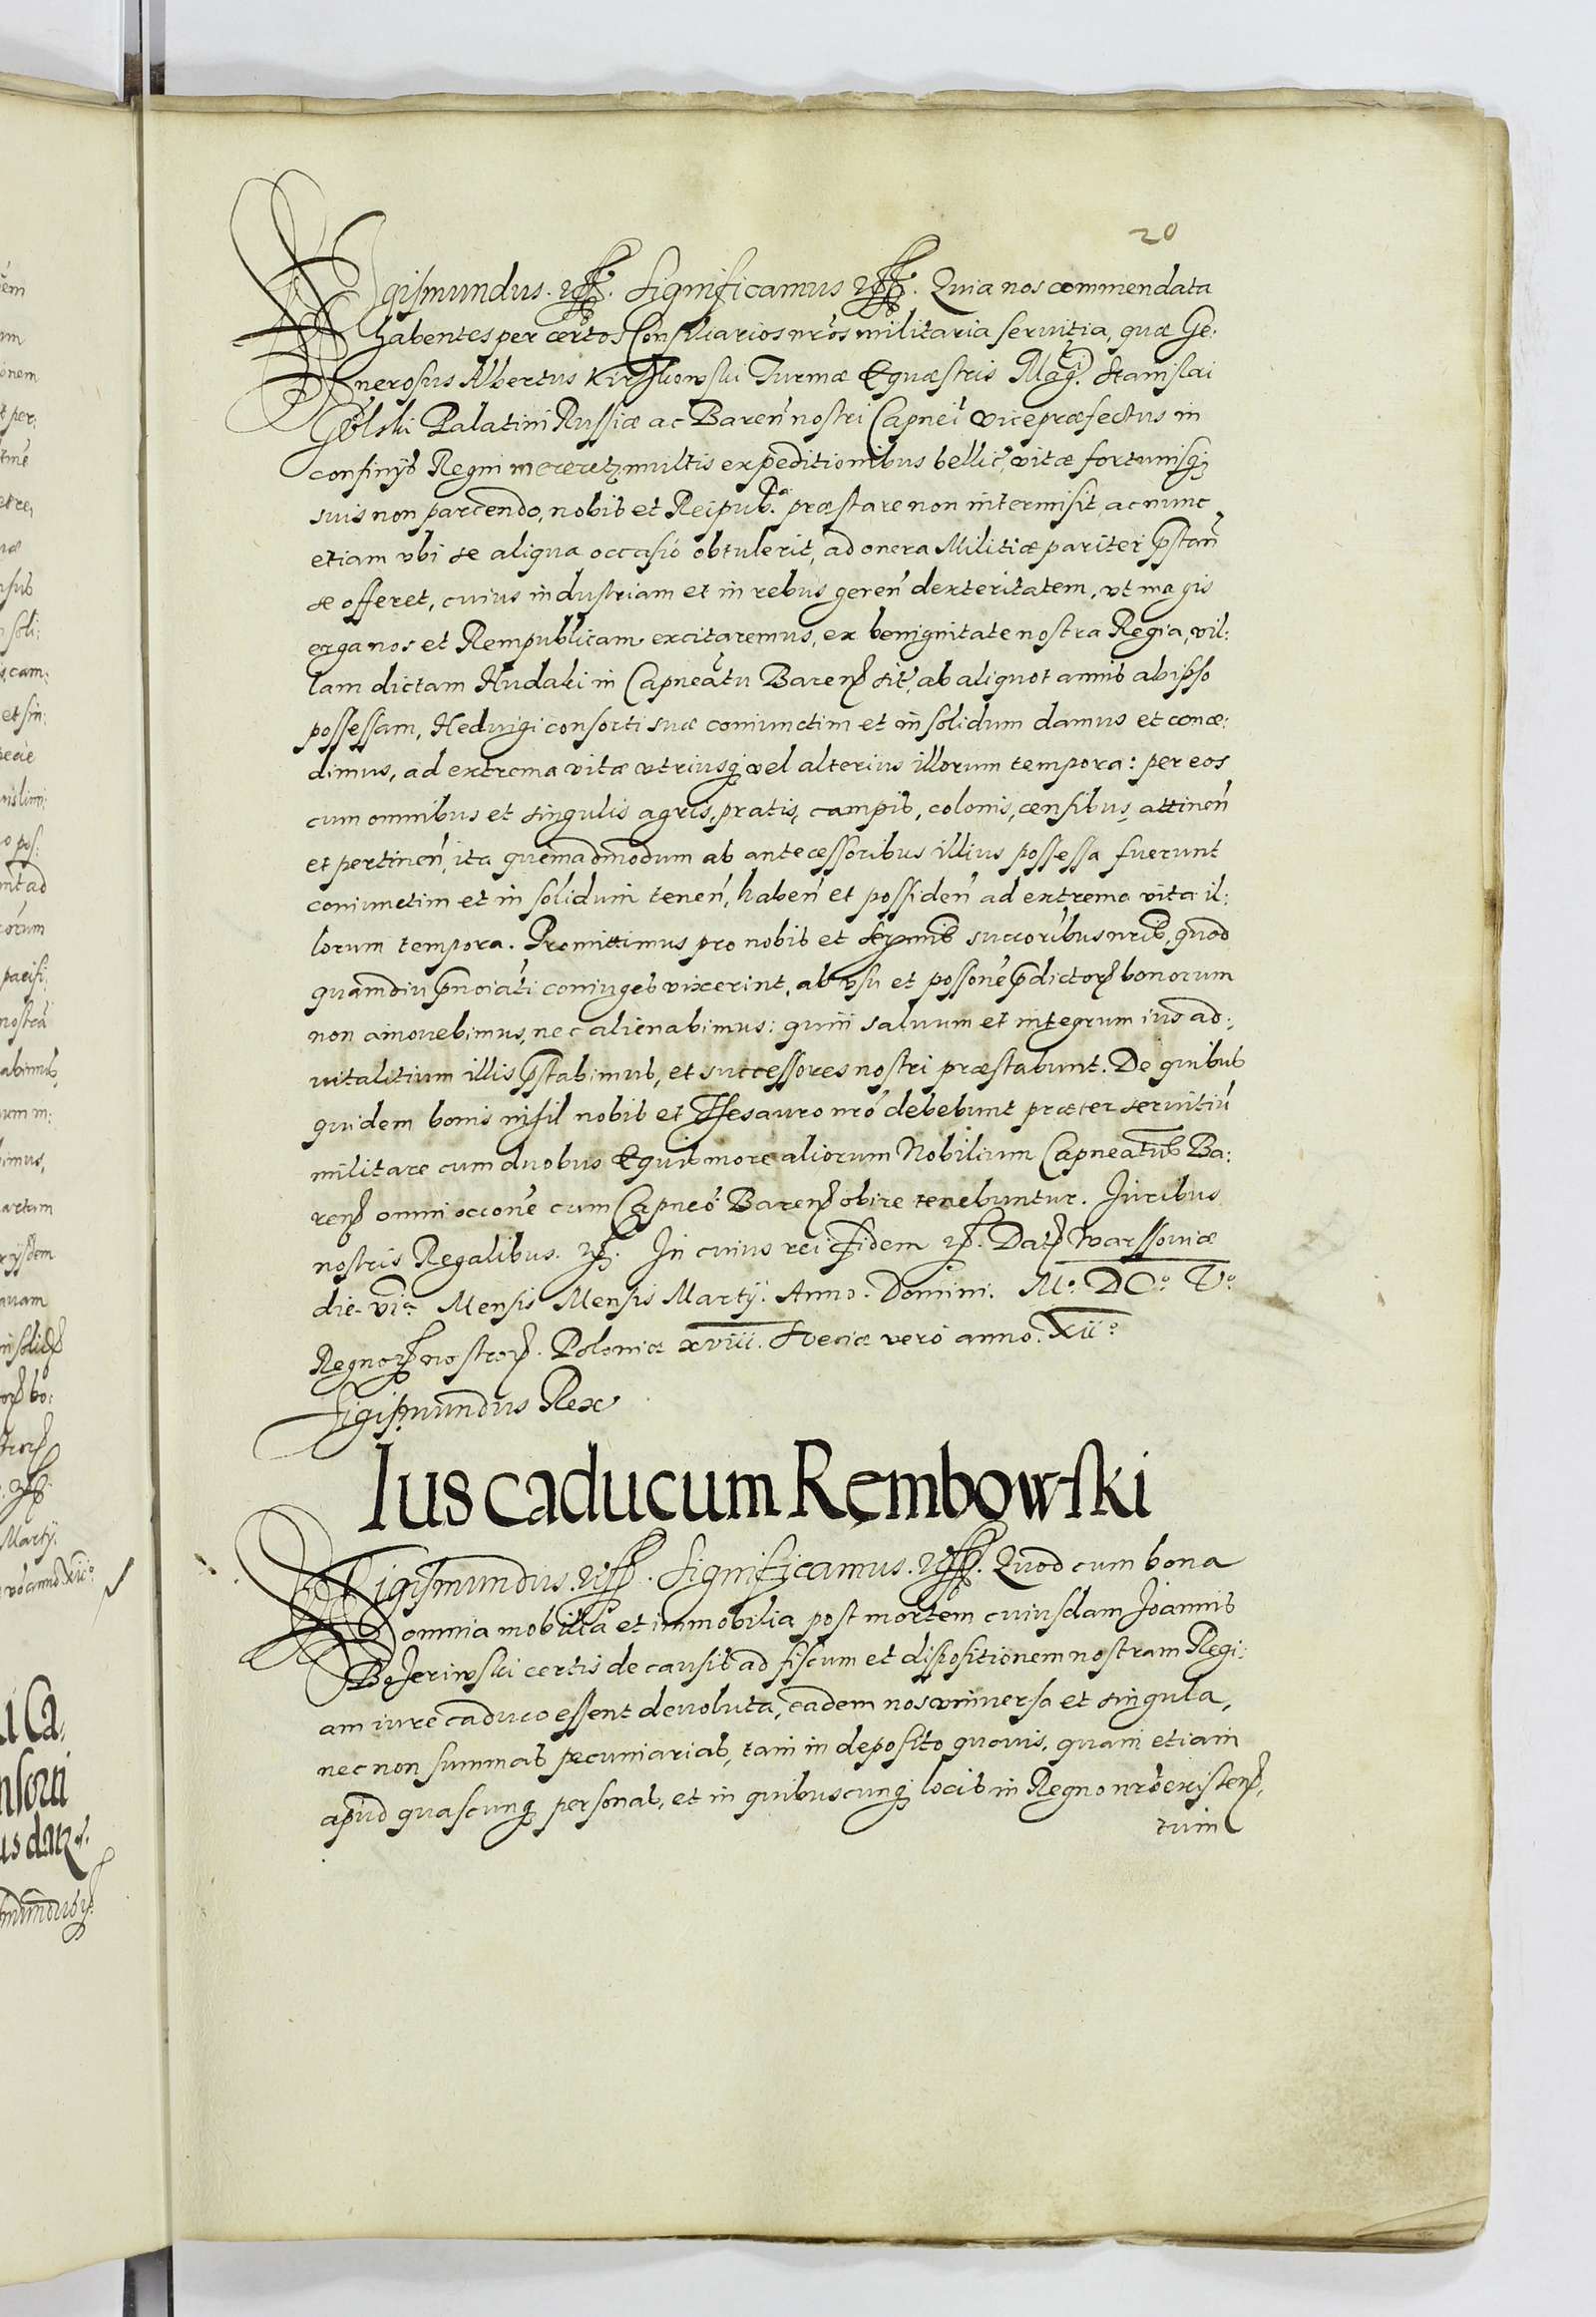 20
Sigismundus. etc. Significamus etc. Quia nos commendata
habentes per certos Consiliarios nr̃os militaria seruitia, quæ Ge:
nerosus Albertus Kirzkowski Turmæ Equæstris Mag: Stanislai
Golski Palatini Russiæ ac Baren̄ nostri Capnei vicepræfectus in
confinijs Regni mereretz multis expeditionibus bellic̄, vitæ fortunisq3
suis non parcendo, nobis et Reipub:ᶜᵃ præstare non intermisit, ac nunc
etiam vbi se aliqua occasio obtulerit, ad onera Militiæ pariter p̄stan̄
se offeret, cuius industriam et in rebus geren̄ dexteritatem, vt magis
erga nos et Rempublicam excitaremus, ex benignitate nostra Regia, vil:
lam dictam Hudaki in Capneatu Baren̄ sit̄, ab aliquot annis ab ipso
possessam, Heduigi consorti suæ coniunctim et in solidum damus et conce:
dimus, ad extrema vitæ vtriusq3 vel alterius illorum tempora: per eos
cum omnibus et singulis agris, pratis, campis, colonis, censibus, attinen̄
et pertinen̄, ita quemadmodum ab antecessoribus illius possessa fuerunt
coniunctim et in solidum tenen̄, haben̄ et possiden̄ ad extrema vita il:
lorum tempora. Promittimus pro nobis et Sermis succoribus nris, quod
quamdiu p̄noiati coniuges vixerint, ab vsu et possone p̄dictor̄ bonorum
non amouebimus, nec alienabimus: quin saluum et integrum ius ad:
uitalitium illis p̄stabimus, et successores nostri præstabunt. De quibus
quidem bonis nihil nobis et Thesauro nr̄o debebunt præter seruitiū
militare cum duobus Equis more aliorum Nobilium Capneatus Ba:
ren̄ omni occone cum Capneo Baren̄ obire tenebuntur. Iuribus
nostris Regalibus. etc. In cuius rei fidem etc. Dat̄ Warssouiæ
die. viᵃ Mensis Mensis Martij. Anno. Domini. Mᵒ. DCᵒ. Vᵒ
Regnor̄ nostror̄. Poloniæ xviii. Sueciæ vero anno. Xiiᵒ
Sigismundus Rex
Ius caducum Rembowski
Sigismundus. etc. Significamus. etc. Quod cum bona
omnia mobilia et immobilia post mortem cuiusdam Joannis
Bojeriwski certis de causis ad fiscum et dispositionem nostram Regi:
am iure caduco essent deuoluta, eadem nos vniuersa et singula,
nec non summas pecuniarias, tam in deposito quouis, quam etiam
apud quascunq3 personas, et in quibuscunq3 locis in Regno nr̄o existen̄,
tum